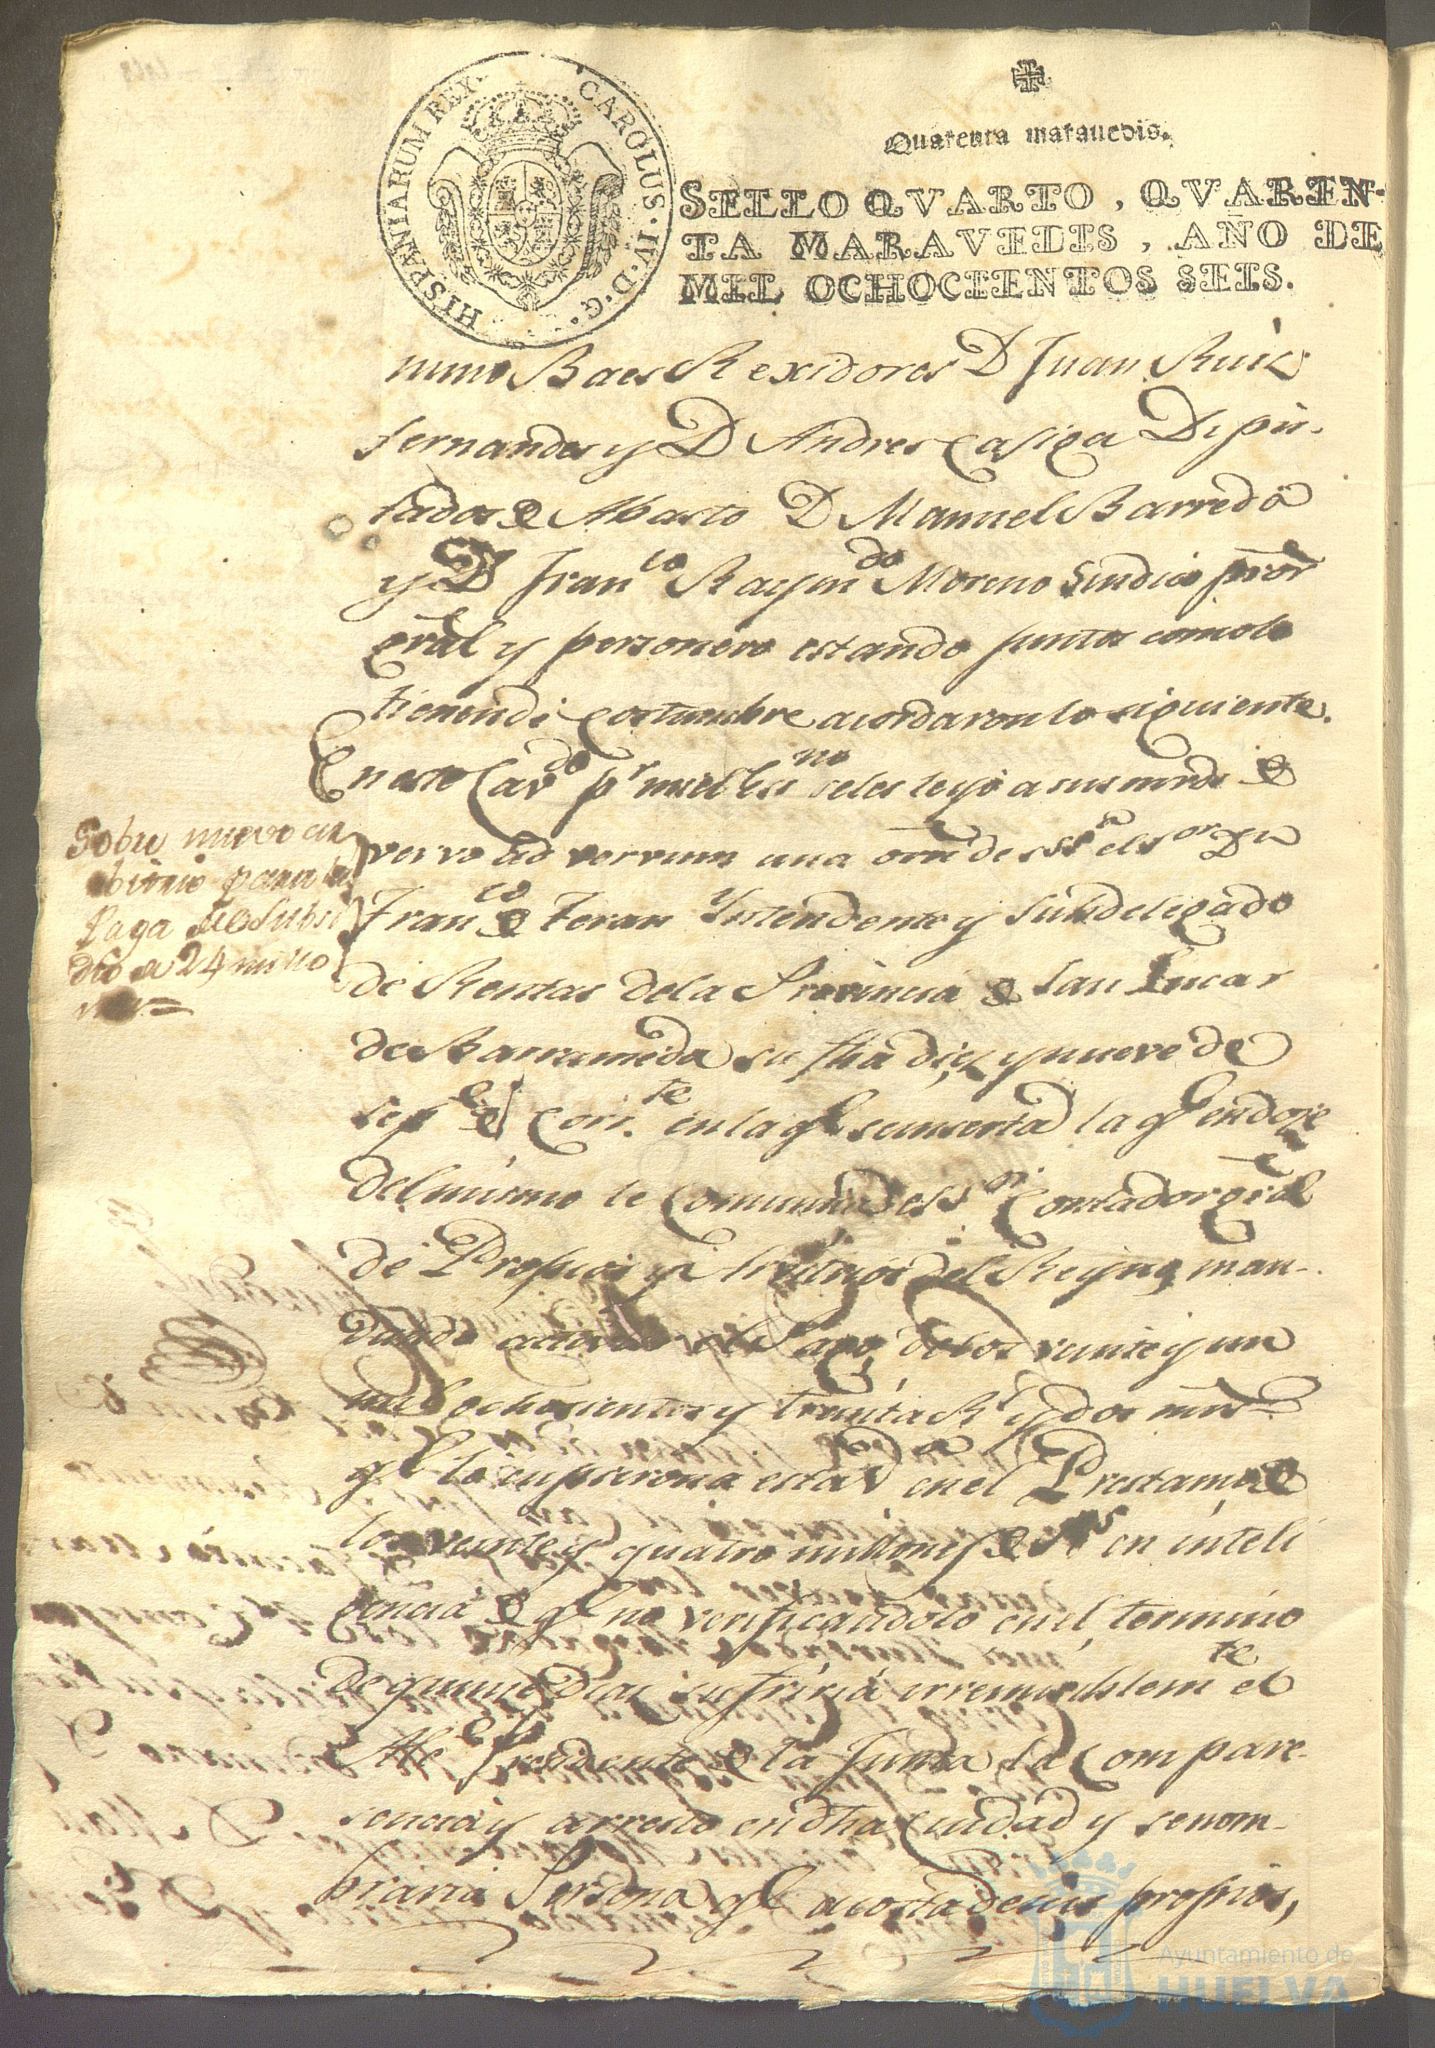 HISPANIARUM REX. CAROLUS. IV. D. G.
Quarenta marauedis.
SELLO QVARTO, QVAREN-
TA MARAVEDIS, AÑO DE
MIL OCHOCIENTOS SEIS.
nimo Baes Rexidores D Juan Ruiz
Fernandes y D Andres Casiga Dipu-
tados de Abasto D Manuel Barreda
y D Fran.co Raym.do Moreno Sindico pror
gral y personero estando juntos como lo
tienen de Costumbre acordaron lo siguiente.
En este Cavdo pr mi el Essno se les leyó a sus mrds de
vervo ad vervum una orn de SSa el Sor Dn
Fran.co de Teran Yntendente y Subdelegado
de Rentas de la Provincia de San Lucar
de Barrameda su fha diez y nueve de
sepe del Corr.te en la ql se inserta la qe en doze
del mismo le Comunica el Sor Contador gral
de Propios y Arvitrios del Reyno, man-
dando el Pago, de los veinte y un
mil ochosientos y treinta Rs y dos mrs
qe le en el Prestamo de
los veinte y quatro millones de Rs en inteli
gencia de qe no verificandolo en el termino
de quinse Dias sufrirá irremisiblemte el
Alle Presidente de la Junta la Compare-
sencia y arresto en dha Ciudad y se nom-
braria Persona qe a costa de sus propios,
Sobre nuevo ar
bitrio para la
Paga del Subsi
dio de 24 millo
Ayuntamiento de
HUELVA